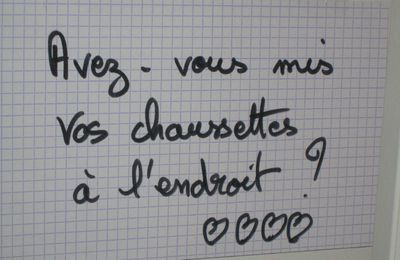 Avez-vous mis
vos chaussettes
à l'endroit ?
♡♡♡♡